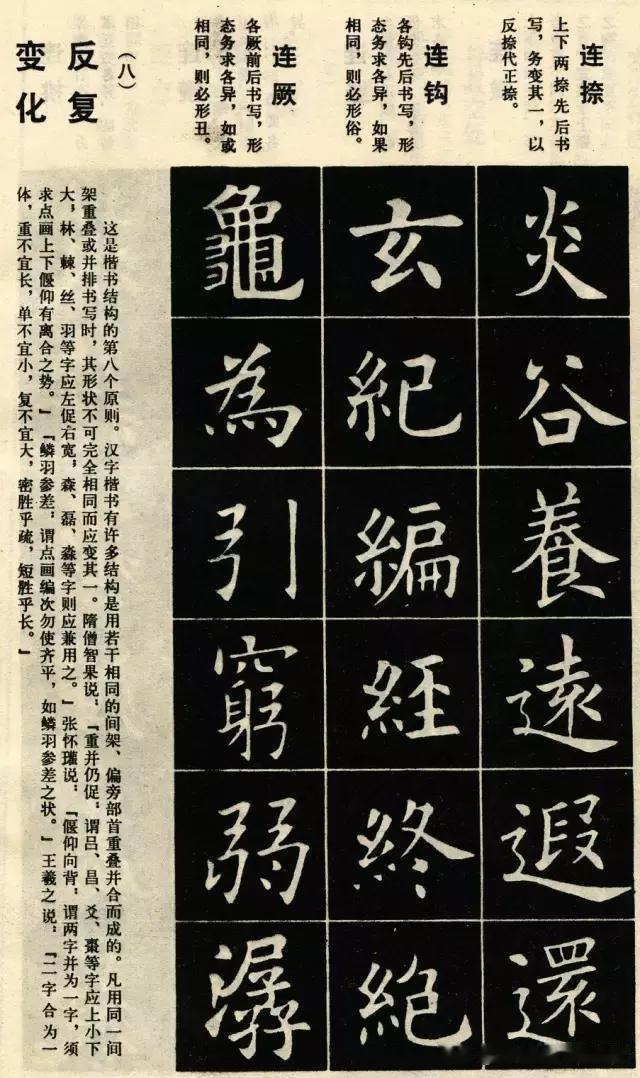 连捺
上下两捺先后书
写，务变其一，以
反捺代正捺。
炎谷養遠遐還
连钩
各钩先后书写，形
态务求各异，如果
相同，则必形俗。
玄紀編經終絶
连厥
各厥前后书写，形
态务求各异，如或
相同，则必形丑。
龜為引窮弱潺
（八）
反复
变化
这是楷书结构的第八个原则。汉字楷书有许多结构是用若干相同的间架、偏旁部首重叠并合而成的。凡用同一间
架重叠或并排书写时，其形状不可完全相同而应变其一。隋僧智果说，「重并仍促，谓吕、昌、爻、棗等字应上小下
大，林、棘、丝、羽等字应左促右宽，森、磊、淼等字则应兼用之。」张怀瓘说，「偃仰向背，谓两字并为一字，须
求点画上下偃仰有离合之势。」「鳞羽参差，谓点画编次勿使齐平，如鳞羽参差之状。」王羲之说，「二字合为一
体，重不宜长，单不宜小，复不宜大，密胜乎疏，短胜乎长。」